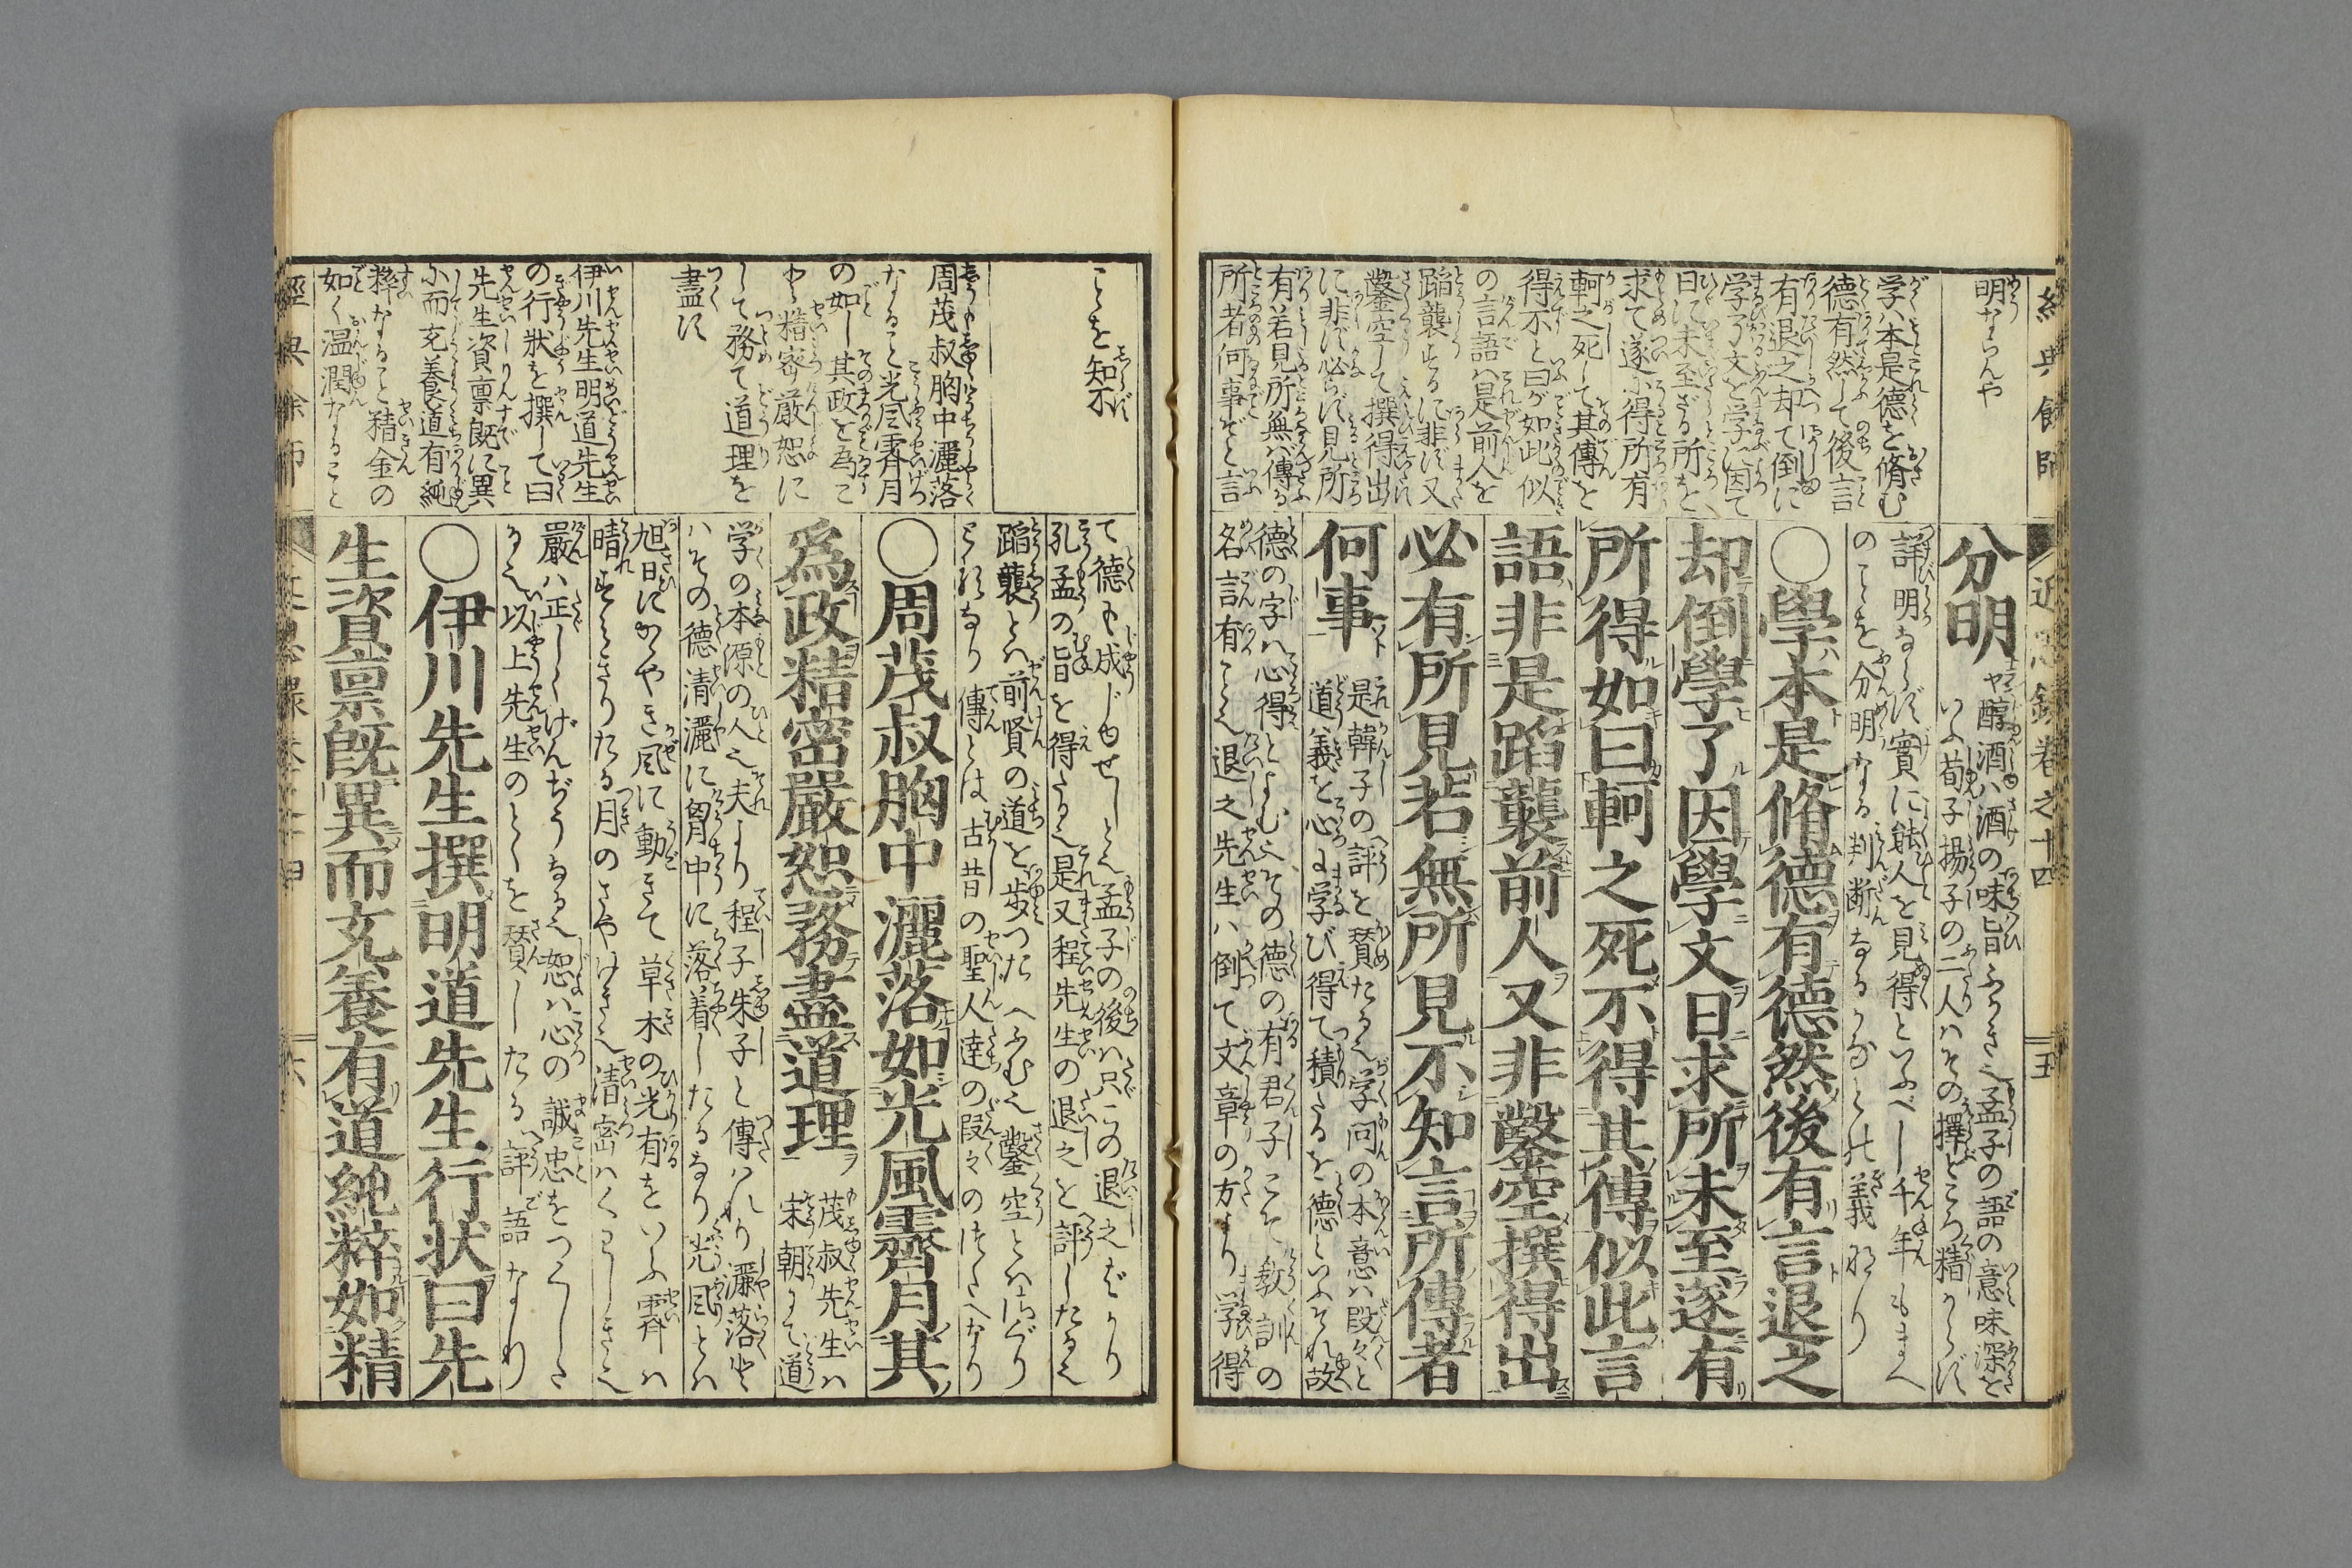 經典餘師
近思録卷之十四
五
明ならんや
学ハ本是德を脩む
德有然して後言
有退之却て倒に
学了文を学ぶに因て
日に未至ざる所を
求て遂に得所有
軻之死して其傳を
得不と曰が如此似
の言語ハ是前人を
蹈襲するに非ず又
鑿空して撰得出
に非ず必らず見所
有若見所無バ傳る
所者何事ぞと言
分明
醇酒ハ酒の味旨ふかき之孟子の語の意味深を
いふ荀子揚子の二人ハその擇ところ精からず
詳明ならず實に能人を見得といふべし千年もまへ
のことを分明なる判断なるかなとの義なり
〇學本是脩德有德然後有言退之
却倒學了因學文日求所未至遂有
所得如曰軻之死不得其傳似此言
語非是蹈襲前人又非鑿空撰得出
必有所見若無所見不知言所傳者
何事
是韓子の評を賛たる之学问の本意ハ段々と
道義を心に学び得て積たるを德といふそれ故
德の字ハ心得とよむ之その德の有君子にて教訓の
名言有こと之退之先生ハ倒て文章の方より学得
ことを知不
周茂叔胸中灑落
なること光風霽月
の如し其政を為こ
と精密厳恕に
して務て道理を
盡す
伊川先生明道先生
の行狀を撰して曰
先生資稟既に異
小而充養道有純
粹なること精金の
如く温潤なること
て德も成じゆせしと之孟子の後ハ只この退之ばかり
孔孟の旨を得たる之是又程先生の退之を評したる之
蹈襲とハ前賢の道を歩つたへふむ之鑿空とハほぐり
とほすなり傳とは古昔の聖人達の段々のつたへなり
〇周茂叔胸中灑落如光風霽月其
爲政精密嚴恕務盡道理
茂叔先生ハ
宋朝にて道
学の本源の人之夫より程子朱子と傳ハれり灑落とハ
ハその德清灑に胸中に落着したるなり光風とハ
旭日にかゞやき風に動きて草木の光有をいふ霽ハ
晴すみきりたる月のさやけき之精密ハくわしき之
嚴ハ正しくげんぢうなる之恕ハ心の誠忠をつくした
る之以上先生のことを賛したる評語なり
〇伊川先生撰明道先生行状曰先
生資稟既異而充養有道純粹如精
經典餘師
近思録卷之十四
六